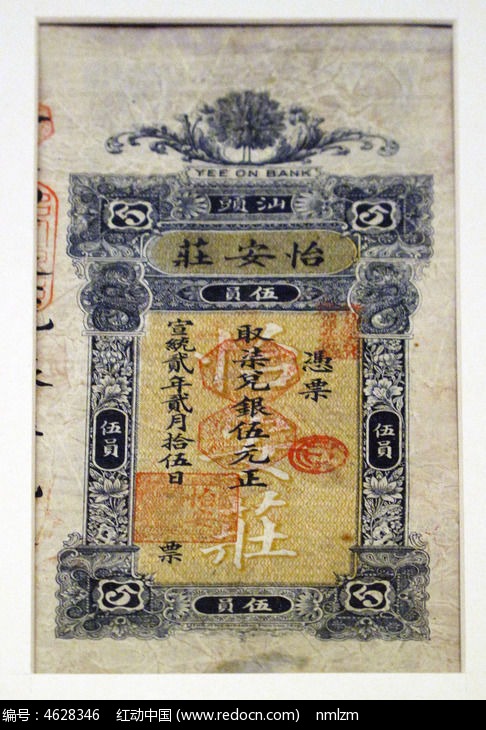 YEE ON BANK
汕頭
怡安莊
伍員
憑票
取柒兌銀伍元正
宣統貳年貳月拾伍日
票
伍員
伍員
伍員
莊
编号：4628346 红动中国 (www.redocn.com) nmlzm